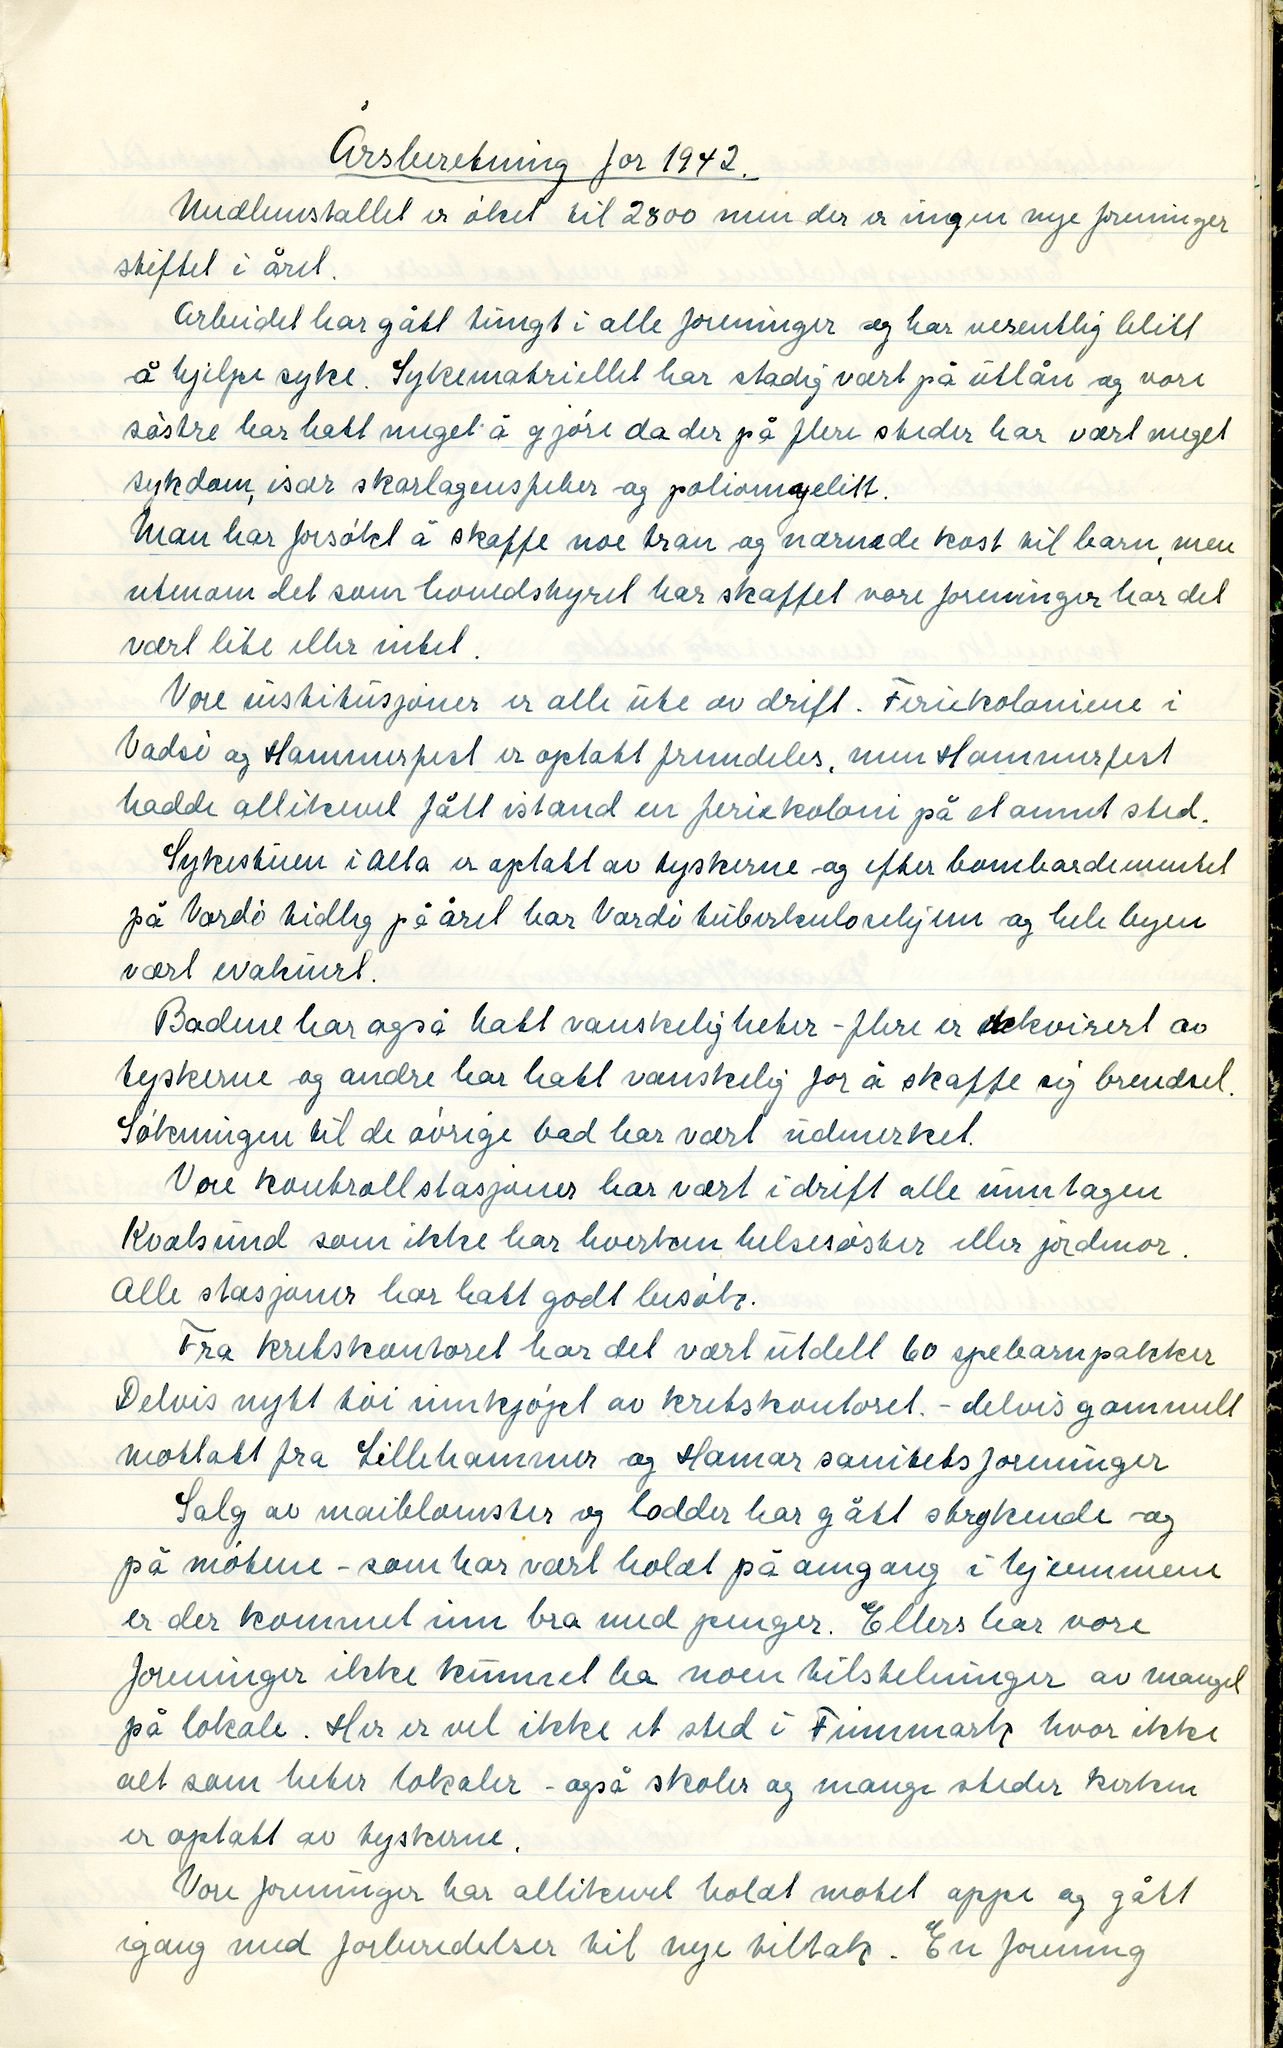 Årsberetning for 1942.
Medlemstallet er øket til 2800 men der er ingen nye foreninger
stiftet i året.
Arbeidet har gått tungt i alle foreninger og har vesentlig blitt
å hjelpe syke. Sykematriellet har stadig vært på utlån og vore
søstre har hatt meget å gjøre da der på flere steder har vært meget
sykdom, især skarlagensfeber og poliomyelitt.
Man har forsøkt å skaffe noe tran og nærende kost til barn, men
utenom det som hovedstyret har skaffet vore foreninger har det
vært lite eller intet.
Vore institusjoner er alle ute av drift. Feriekoloniene i
Vadsø og Hammerfest er optatt fremdeles, men Hammerfest
hadde allikevel fått istand en feriekoloni på et annet sted.
Sykestuen i Alta er optatt av tyskerne og efter bombardementet
på Vardø tidlig på året har Vardø tuberkulosehjem og hele byen
vært evakuert.
Badene har også hatt vanskeligheter - flere er rekvirert av
tyskerne og andre har hatt vanskelig for å skaffe sig brendsel.
Søkningen til de øvrige bad har vært udmerket.
Vore kontrollstasjoner har vært i drift alle unntagen
Kvalsund som ikke har hverken helsesøster eller jordmor.
Alle stasjoner har hatt godt besøk.
Fra kretskontoret har det vært utdelt 60 spebarnpakker
Delvis nytt tøi innkjøpt av kretskontoret. - delvis gammelt
mottatt fra Lillehammer og Hamar sanitetsforeninger
Salg av maiblomster og lodder har gått strykende og
på møtene - som har vært holdt på omgang i hjemmene
er der kommet inn bra med penger. Ellers har vore
foreninger ikke kunnet ha noen tilstelninger av mangel
på lokale. Her er vel ikke et sted i Finnmark hvor ikke
alt som heter lokaler - også skoler og mange steder kirken
er optatt av tyskerne.
Vore foreninger har allikevel holdt motet oppe og gått
igang med forberedelser til nye tiltak. En forening